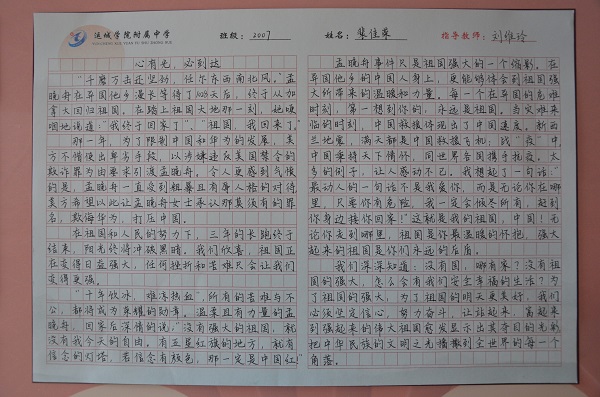 运城学院附属中学
班级：2007
姓名：
指导教师：刘维玲
心有光，必到达
"千磨万击还坚劲，任尔东西南北风。"孟
晚舟在异国他乡漫长等待了1028天后，终于从加
拿大回归祖国。在踏上祖国大地那一刻，她哽
咽地说道："我终于回家了"，"祖国，我回来了。"
那一年，为了限制中国和华为的发展，美
方不惜使出卑劣手段，以涉嫌违反美国禁令的
欺诈罪为由要求引渡孟晚舟。令人更感到气愤
的是，孟晚舟一直受到粗暴且有辱人格的对待。
美方希望以此让孟晚舟女士承认那莫须有的罪
名，欺侮华为，打压中国。
在祖国和人民的努力下，三年的长跑终于
结束，阳光终将冲破黑暗。我们欣喜，祖国正
在变得日益强大，任何挫折和苦难只会让我们
变得更强。
"千年饮冰，难凉热血"，所有的苦难与不
公，都将成为荣耀的勋章。温柔且有力量的孟
晚舟，回家后深情的说，"没有强大的祖国，就
没有我今天的自由。有五星红旗的地方，就有
信念的灯塔，若信念有颜色，那一定是中国红！"
孟晚舟事件只是祖国强大的一个缩影，在
异国他乡的中国人身上，更能够体会到祖国强
大所带来的温暖和力量。每一个在异国的危难
时刻，第一想到你的，永远是祖国。当灾难来
临的时刻，中国救援体现出了中国速度。新西
兰地震，满天都是中国救援飞机，战"疫"中，
中国秉持天下情怀，同世界各国携手抗疫。太
多的例子，让人感动不已。我想起了一句话："
最动人的一句话不是我爱你，而是无论你在哪
里，只要你有危险，我一定会倾尽所有，赶到
你身边接你回家！"这就是我们的祖国，中国！无
论你走到哪里，祖国是你最温暖的怀抱，强大
起来的祖国是你们永远的后盾。
我们深深知道：没有国，哪有家？没有祖
国的强大，怎么会有我们安定幸福的生活？为
了祖国的强大，为了祖国的明天更美好，我们
必须坚定信心，努力奋斗，让站起来，富起来
到强起来的伟大祖国愈发显示出其夺目的光彩，
把中华民族的文明之光播撒到全世界的每一个
角落。